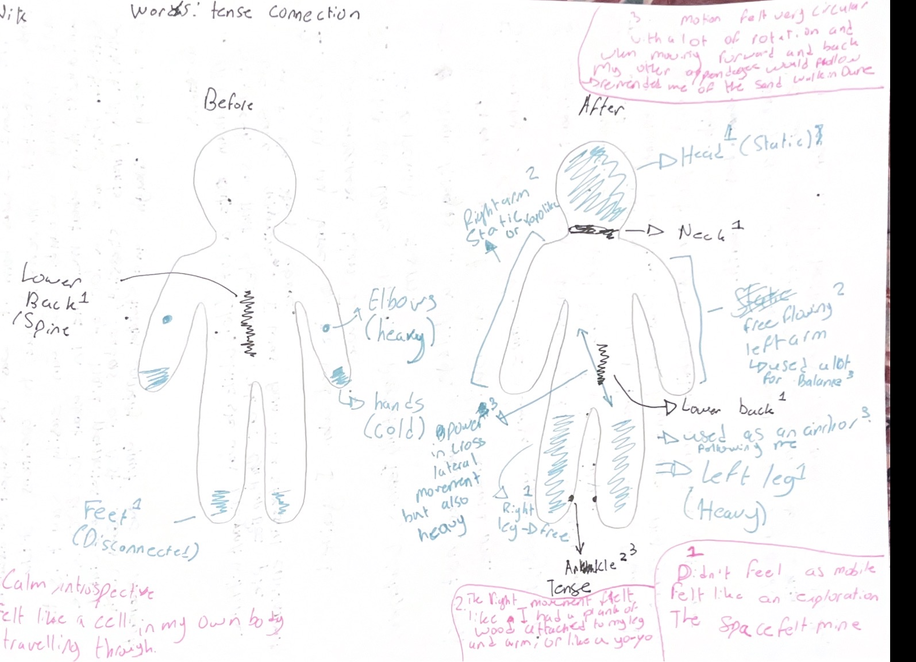 Words: tense connection
3 motion felt very circular
with a lot of rotation and
when moving forward and back
my other appendages would follow
reminded me of the sand walk in Dune
Before
After
Lower
Back 1
/Spine
Elbows
(heavy)
hands
(cold)
Feet 1
(Disconnected)
Calm introspective
felt like a cell in my own body
travelling through.
Head 1 (Static)
Right arm 2
Static
or
Neck 1
Static
free flowing 2
left arm
used a lot
for Balance 3
Lower back 1
power 3
in cross
lateral
movement
but also
heavy
used as an anchor 3
following me
Left leg 1
(Heavy)
1
Right
leg → free
Ankle 2 3
Tense
2. The Right movement felt
like I had a plank of
wood attached to my leg
and arm, or like a yo-yo
1
Didn't feel as mobile
felt like an exploration
The space felt mine